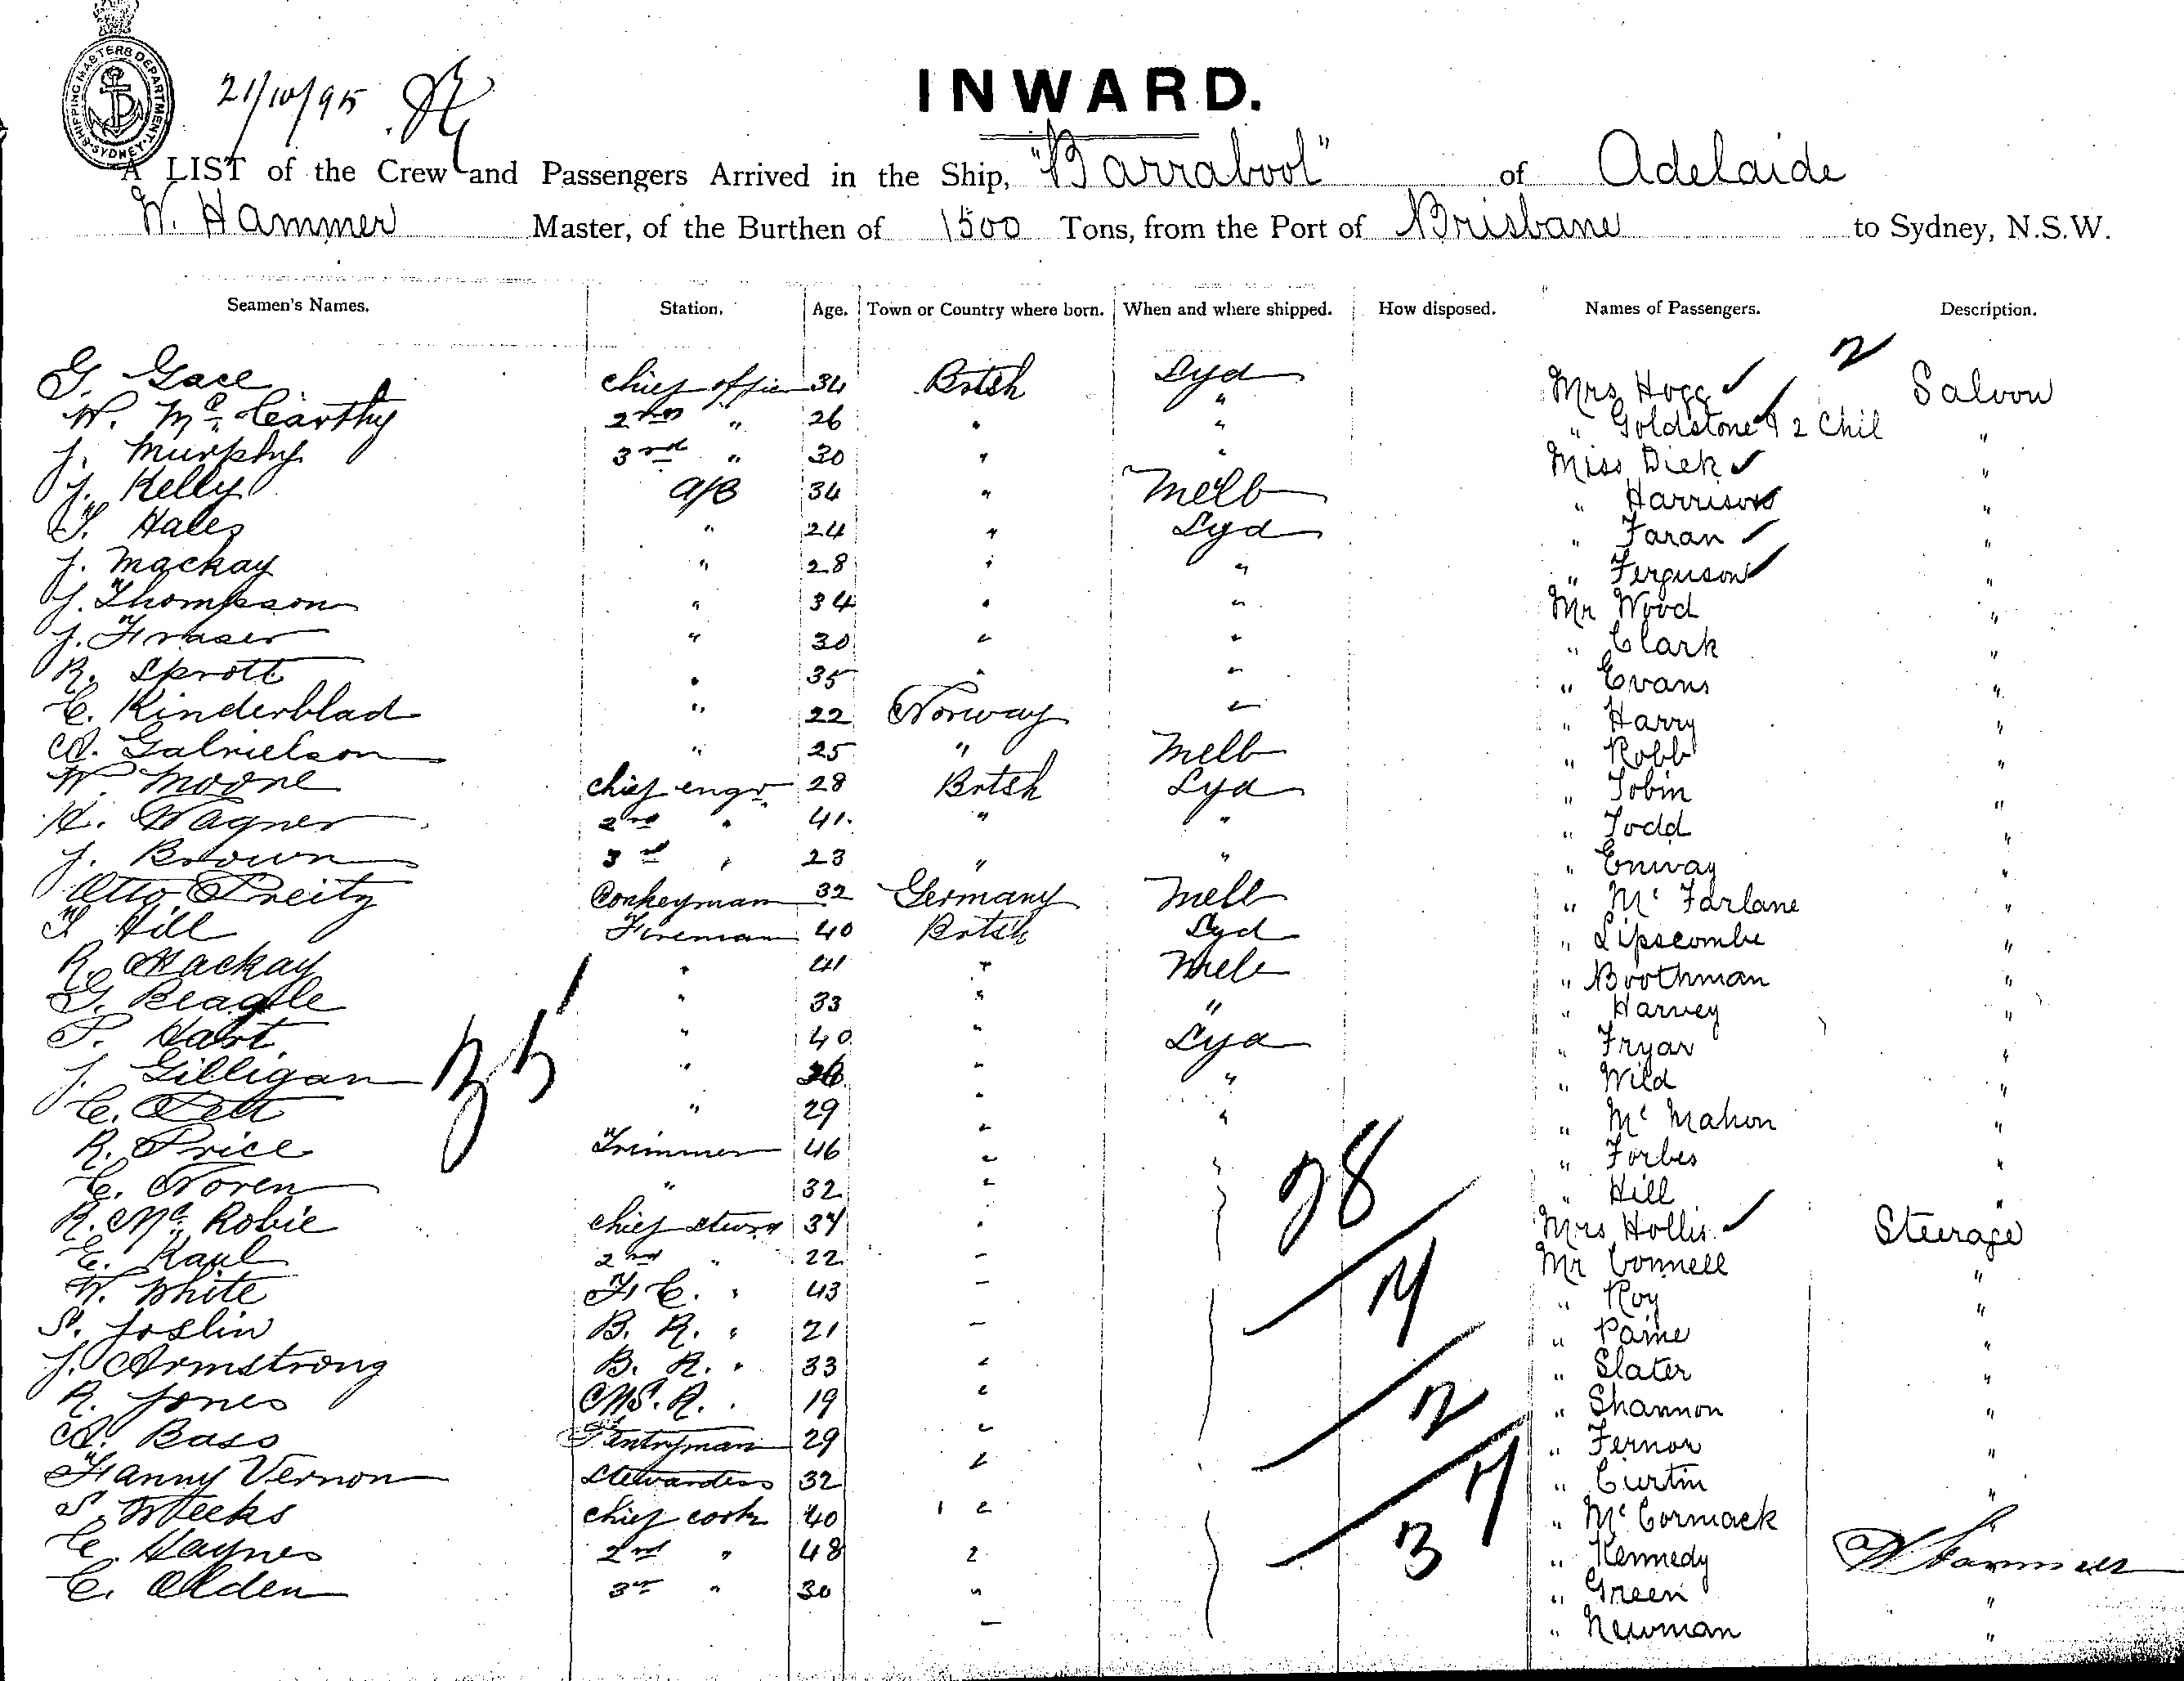 SHIPPING MASTERS DEPARTMENT. SYDNEY.
21/10/95
INWARD.
A LIST of the Crew and Passengers Arrived in the Ship, "Barrabool" of Adelaide
W. Hammer Master, of the Burthen of 1500 Tons, from the Port of Brisbane to Sydney, N.S.W.
Seamen's Names. Station. Age. Town or Country where born. When and where shipped. How disposed. Names of Passengers. Description.
2
G. Gace chief offic 34 Britsh Syd Mrs Hogg Saloon
W. Mc Carthy 2nd " 26 " " " Goldstone & 2 Chil "
J. Murphy 3rd " 30 " " Miss Dick "
J. Kelly A/B 34 " Melb " Harrison "
T. Hales " 24 " Syd " Faran "
J. Mackay " 28 " " " Ferguson "
J. Thompson " 34 " " Mr Wood "
J. Fraser " 30 " " " Clark "
R. Sprott " 35 " " " Evans "
C. Kinderblad " 22 Norway " " Harry "
A. Gabrielson " 25 " Melb " Robb "
W. Moore chief engr 28 Britsh Syd " Tobin "
H. Wagner 2nd " 41 " " " Todd "
J. Brown 3rd " 23 " " " Enway "
Otto Preitz Donkeyman 32 Germany Melb " Mc Farlane "
T Hill Fireman 40 Britsh Syd " Lipscombe "
R. Mackay " 41 " Melb " Boothman "
G. Beagle " 33 " " " Harvey "
P. Hart " 40 " Syd " Fryar "
35
J. Gilligan " " " " Wild "
C. Pett " 29 " " " Mc Mahon "
R. Price Trimmer 46 " " " Forbes "
28
C. Noren " 32 " " Hill "
R. Mc Robie chief stwrd 34 " Mrs Hollis Steerage
E. Kaul 2nd " 22 " Mr Connell "
14
W. White F. C. " 43 " " Roy "
S. Joslin B. R. " 21 " " Paine "
J. Armstrong B. R. " 33 " " Slater "
2
R. Jones M.S.R. " 19 " " Shannon "
A. Bass Pantryman 29 " " Fernor "
Fanny Vernon Stewardess 32 " " Curtin "
S. Weeks chief cook 40 " " Mc Cormack "
3
C. Haynes 2nd " 48 " " Kennedy " W Hammer
C. Olden 3rd " 30 " " Green "
" " Newman "